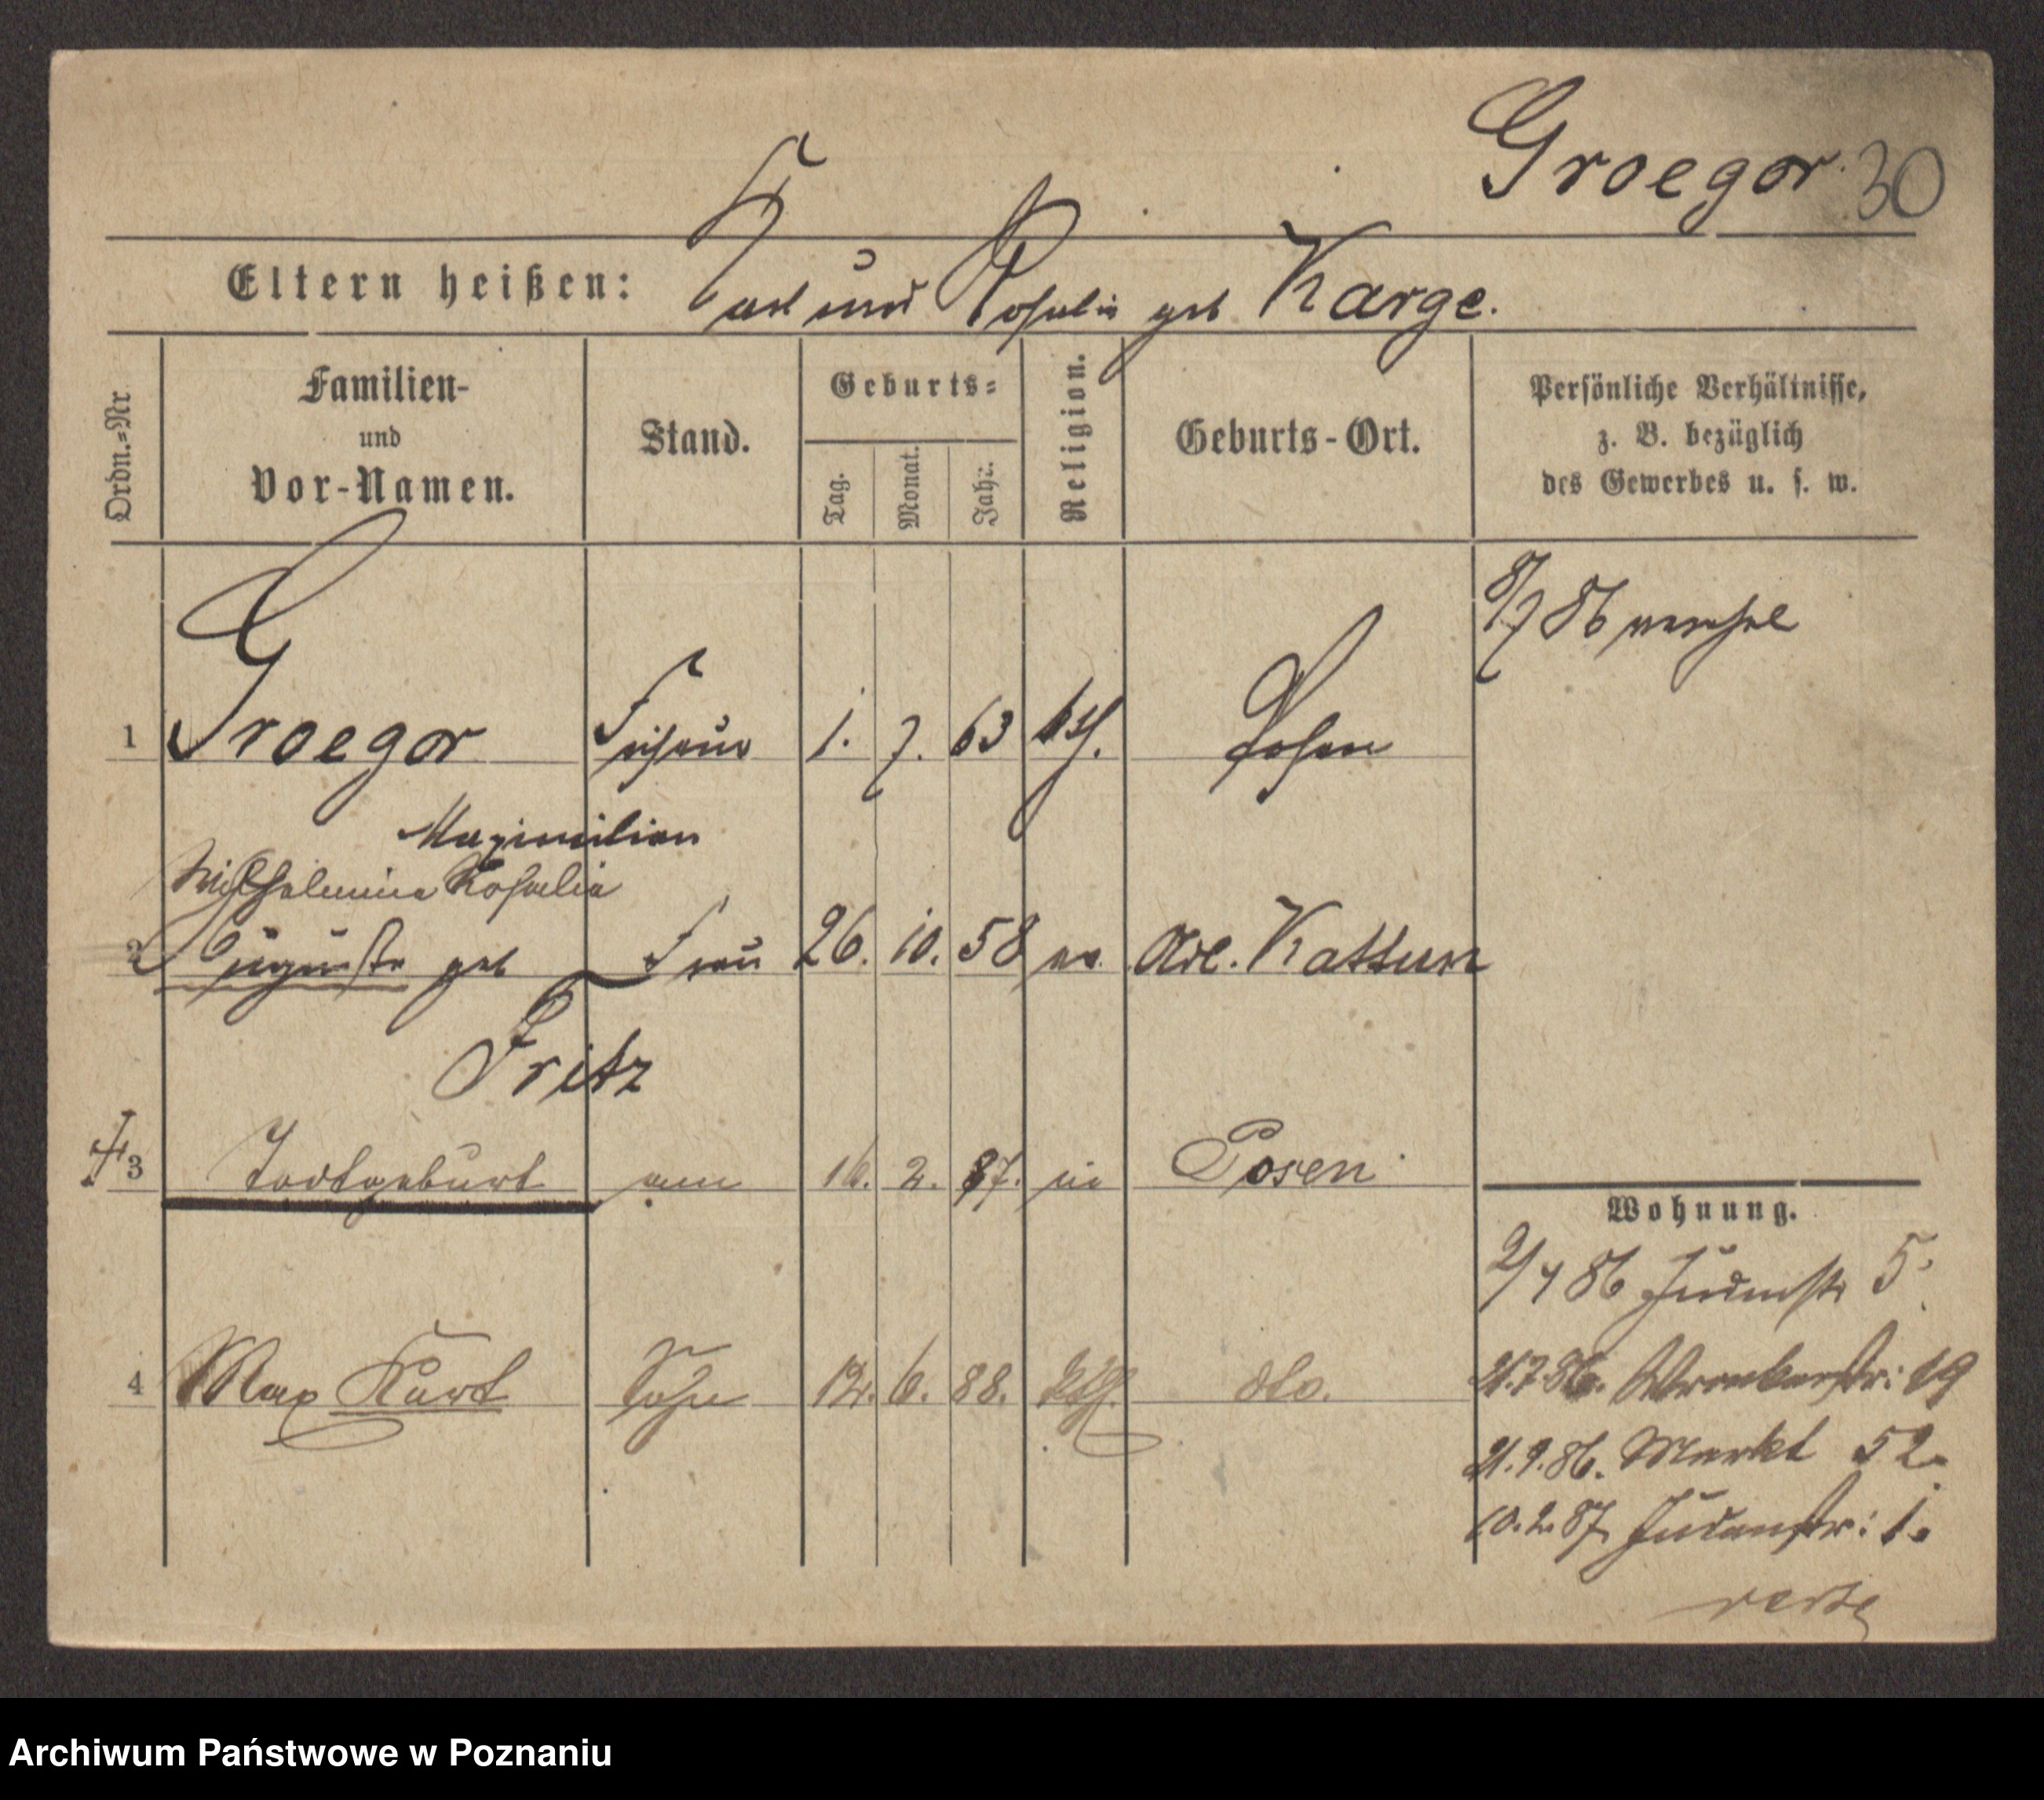 Groegor 30
Eltern heißen: Karl und Rosalie geb Karge.
Ordn.=Nr
Familien-
und
Vor-Namen.
Stand.
Geburts=
Tag.
Monat.
Jahr.
Religion.
Geburts-Ort.
Persönliche Verhältnisse,
z. B. bezüglich
des Gewerbes u. s. w.
8/7 86
1 Groegor Friseur 1. 7. 63 kth. Posen
Maximilian
Wilhelmine Rosalie
2 Auguste geb Frau 26. 10. 58 ev. Adl. Kattun
Fritz
3 Todtgeburt am 16. 2. 87. in Posen
4 Max Kurt Sohn 12. 6. 88. kth. dto.
Wohnung.
2/4 86 Judenstr 5.
21.7.86. Wronkerstr: 19
21.9.86. Markt 52.
10.2.87 Judenstr: 1.
Archiwum Państwowe w Poznaniu